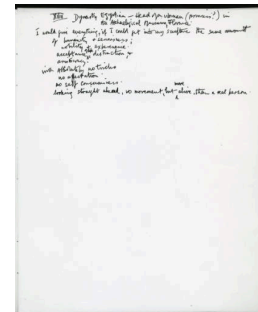 XVIII Dynasty Egyptian – Head of a woman (princess?) in
the Archeological Museum, Florence.
I would give everything, if I could get into my sculpture the same amount
of humanity & seriousness;
nobility & experience,
acceptance, & distinction,
&
with absolutely no tricks
no affectation
no self consciousness
looking straight ahead, no movement, but more alive than a real person.